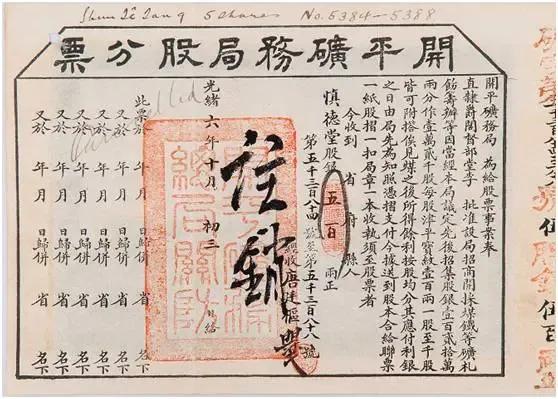 Shun Tê Tang 5 shares No. 5384—5388
開平礦務局股分票
開平礦務局 為給股票事案奉
直隸爵閣督部堂李 批准設局招商開採煤鐵等礦札
飭籌辦等因當經本局議定先後招集股銀壹百貳拾萬
兩分作壹萬貳千股每股津平寶紋壹百兩一股至千股
皆可附搭俟見煤之後所得餘利按股均分其應付利銀
之日由局先為知照憑摺支付今據送到股本合給聯票
一紙股摺一扣局章一本收執須至股票者
今收到 省 府 縣人
慎德堂股銀 五百 兩正
第五千三百八十四號至第五千三百八十八號
經收唐廷樞
註銷
光緒六年十月 初三 日給
Cancelled
此票於 年 月 日歸併 省 名下
又於 年 月 日歸併 省 名下
又於 年 月 日歸併 省 名下
又於 年 月 日歸併 省 名下
又於 年 月 日歸併 省 名下